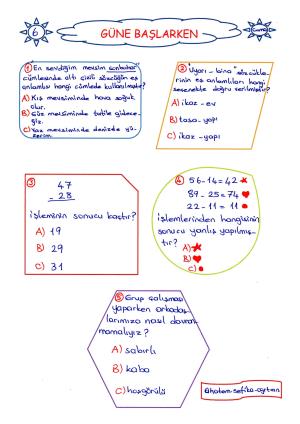 6
GÜNE BAŞLARKEN
1 "En sevdiğim mevsim sonbahar"
cümlesinde altı çizili sözcüğün eş
anlamlısı hangi cümlede kullanılmıştır?
A) Kış mevsiminde hava soğuk
olur.
B) Güz mevsiminde tatile gidece-
ğiz.
C) Yaz mevsiminde denizde yü-
zerim.
2 "Uyarı - bina" sözcükle-
rinin eş anlamlıları hangi
seçenekte doğru verilmiştir?
A) ikaz - ev
B) tasa - yapı
C) ikaz - yapı
3 47
- 28
işleminin sonucu kaçtır?
A) 19
B) 29
C) 31
4 56-14=42 ★
89-25=74 ♥
22-11=11 ●
işlemlerinden hangisinin
sonucu yanlış yapılmış-
tır?
A) ★
B) ♥
C) ●
5 Grup çalışması
yaparken arkadaş-
larımıza nasıl davran-
mamalıyız?
A) sabırlı
B) kaba
C) hoşgörülü